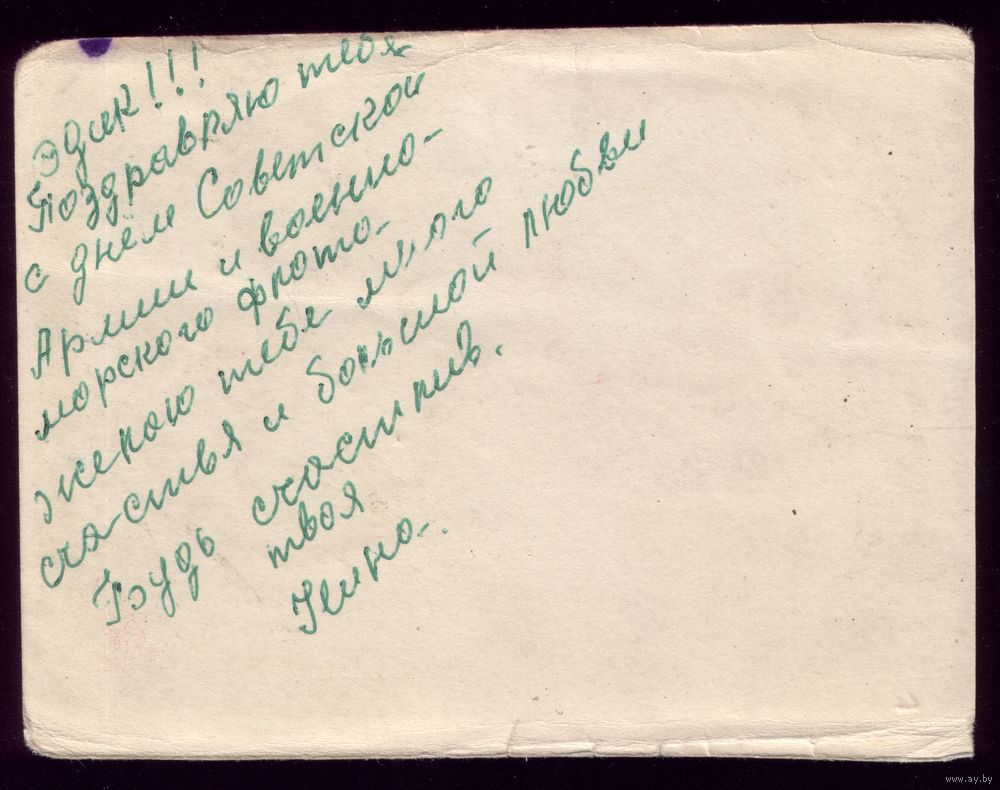 Эдик!!!
Поздравляю тебя
с днём Советской
Армии и военно-
морского флота.
Желаю тебе много
счастья и большой любви
Будь счастлив.
твоя
www.ay.by